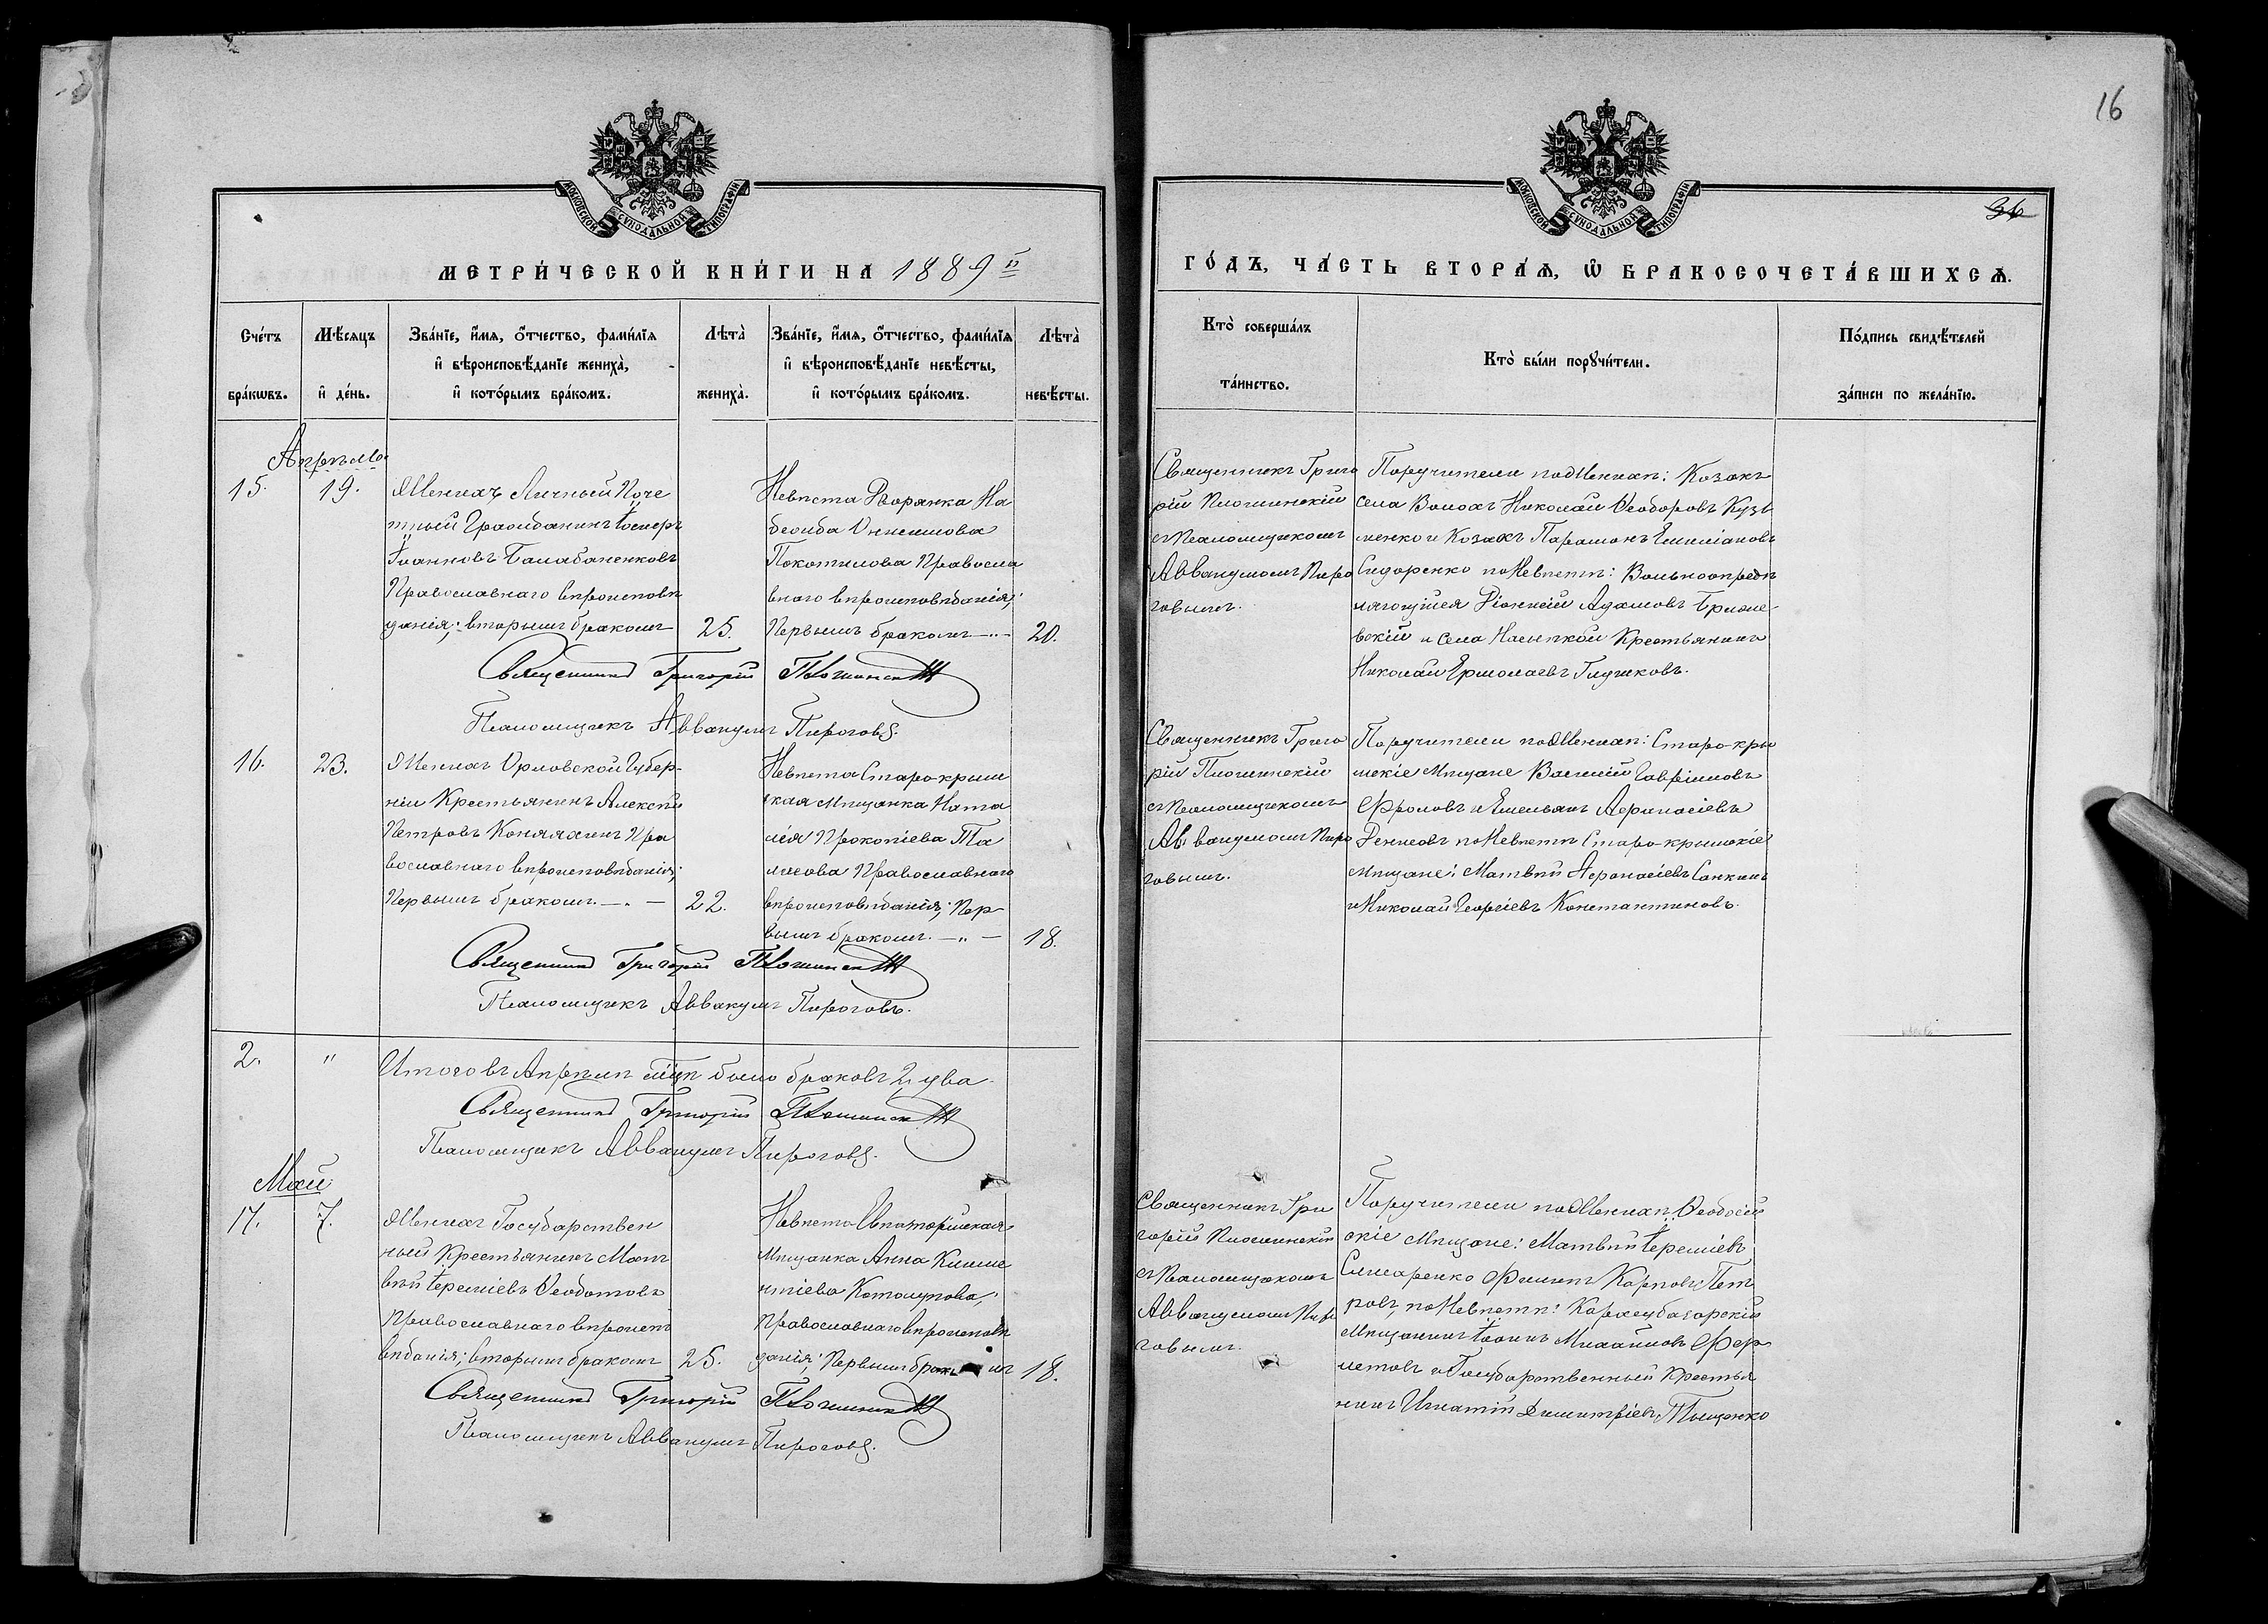 16
36
МОСКОВСКОЙ СѴНОДАЛЬНОЙ ТИПОГРАФІИ
МЕТРИ́ЧЕСКОЙ КНИ́ГИ НА 1889й
Сче́тъ бра́кѡвъ.
Мѣ́сяцъ и҆ де́нь.
Зва́нїе, и҆́мѧ, ѻ҆́тчество, фами́лїѧ
и҆ вѣроисповѣ́данїе жениха̀,
и҆ кото́рымъ бра́комъ.
Лѣта̀ жениха̀.
Зва́нїе, и҆́мѧ, ѻ҆́тчество, фами́лїѧ
и҆ вѣроисповѣ́данїе невѣ́сты,
и҆ кото́рымъ бра́комъ.
Лѣта̀ невѣ́сты.
Апрѣль
15.
19.
Женихъ Личный Поче
тный Гражданинъ Іосифъ
Іоанновъ Балабаненковъ
Православнаго вѣроисповѣ
данія; вторымъ бракомъ
25.
Невѣста Дворянка На
дежда
Покотилова Правосла
внаго вѣроисповѣданія;
Первымъ бракомъ —"—
20.
Священникъ Григорій Плошинскій
Псаломщикъ Аввакумъ Пироговъ.
16.
23.
Женихъ Орловской Губер-
ніи Крестьянинъ Алексѣй
Петровъ Коняхинъ Пра
вославнаго вѣроисповѣданія;
Первымъ бракомъ. —"—
22.
Невѣста Старо-крым
ская Мѣщанка Ната
лія Прокопіева Та
Православнаго
вѣроисповѣданія; Пер
вымъ бракомъ. —"—
18.
Священникъ Григорій Плошинскій
Псаломщикъ Аввакумъ Пироговъ.
2.
"
Итого въ Апрѣлѣ мцѣ было браковъ 2, два
Священникъ Григорій Плошинскій
Псаломщикъ Аввакумъ Пироговъ.
Май
17.
7.
Женихъ Государствен
ный Крестьянинъ Мат
вѣй Іереміевъ Ѳеодотовъ
Православнаго вѣроисп
вѣданія; вторымъ бракомъ
25.
Невѣста Евпаторійская
Мѣщанка Анна Климе
нтіева
Православнаго вѣроисповѣ
данія; Первымъ бракомъ
18.
Священникъ Григорій Плошинскій
Псаломщикъ Аввакумъ Пироговъ.
МОСКОВСКОЙ СѴНОДАЛЬНОЙ ТИПОГРАФІИ
ГО́ДЪ, ЧА́СТЬ ВТОРА́Ѧ, Ѡ҆ БРАКОСОЧЕТА́ВШИХСѦ.
Кто̀ соверша́лъ та́инство.
Кто̀ бы́ли порꙋчи́тели.
По́дпись свидѣ́телей за́писи по жела́нїю.
Священникъ Григо
рій Плошинскій
съ Псаломщикомъ
Аввакумомъ Пиро
говымъ.
Поручители по Женихѣ: Козакъ
села Волохъ Николай Ѳеодоровъ Кузь
менко и Козакъ Парамонъ Емиліановъ
Сидоренко по Невѣстѣ: Вольноопредѣ
ляющійся Діонисій Адамовъ
вскій и села Насыпкой Крестьянинъ
Николай Ермолаевъ
Священникъ Григо
рій Плошинскій
съ Псаломщикомъ
Аввакумомъ Пиро
говымъ.
Поручители по Женихѣ: Старо-кры
мскіе Мѣщане Василій Гавріиловъ
Фроловъ и Емельянъ Аѳанасіевъ
по Невѣстѣ Старо-крымскіе
Мѣщане: Матвѣй Аѳанасіевъ Санкинъ
и Николай Георгіевъ Константиновъ.
Священникъ Гри
горій Плошинскій
съ Псаломщикомъ
Аввакумомъ Пиро
говымъ.
Поручители по Женихѣ Ѳеодосій
скіе Мѣщане: Матвѣй Іереміевъ
Слюсаренко Филипъ Карповъ Пет
ровъ, по Невѣстѣ: Карасубазарскій
Мѣщанинъ Іоаннъ Михайловъ Фер
летовъ и Государственный Крестья
нинъ Игнатій Димитріевъ Тыщенко